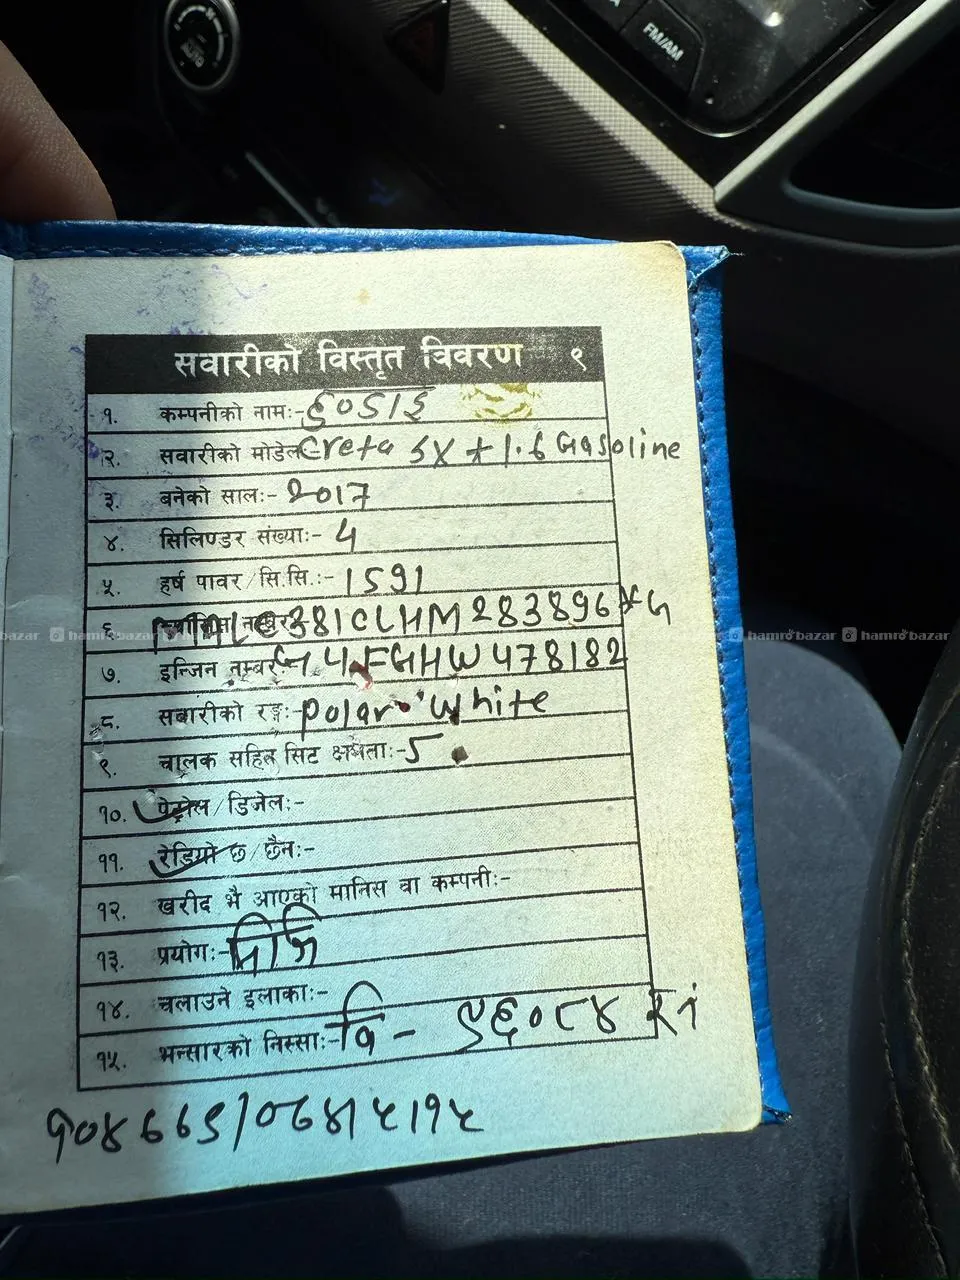 FM/AM
AUTO
सवारीको विस्तृत विवरण ९
१. कम्पनीको नामः- हुण्डाई
२. सवारीको मोडेल Creta SX + 1.6 Gasoline
३. बनेको सालः- 2017
४. सिलिण्डर संख्याः- 4
५. हर्ष पावर/सि.सि.:- 1591
६. MALC381CLHM283896*G
७. इन्जिन नम्बर G4FGHW478182
८. सवारीको रङ्गः- Polar White
९. चालक सहित सिट क्षमताः- 5
१०. पेट्रोल/डिजेलः-
११. रेडियो छ/छैनः-
१२. खरीद भै आएको मानिस वा कम्पनीः-
१३. प्रयोगः- निजि
१४. चलाउने इलाकाः-
१५. भन्सारको निस्साः- वि-
hamrobazar hamrobazar hamrobazar